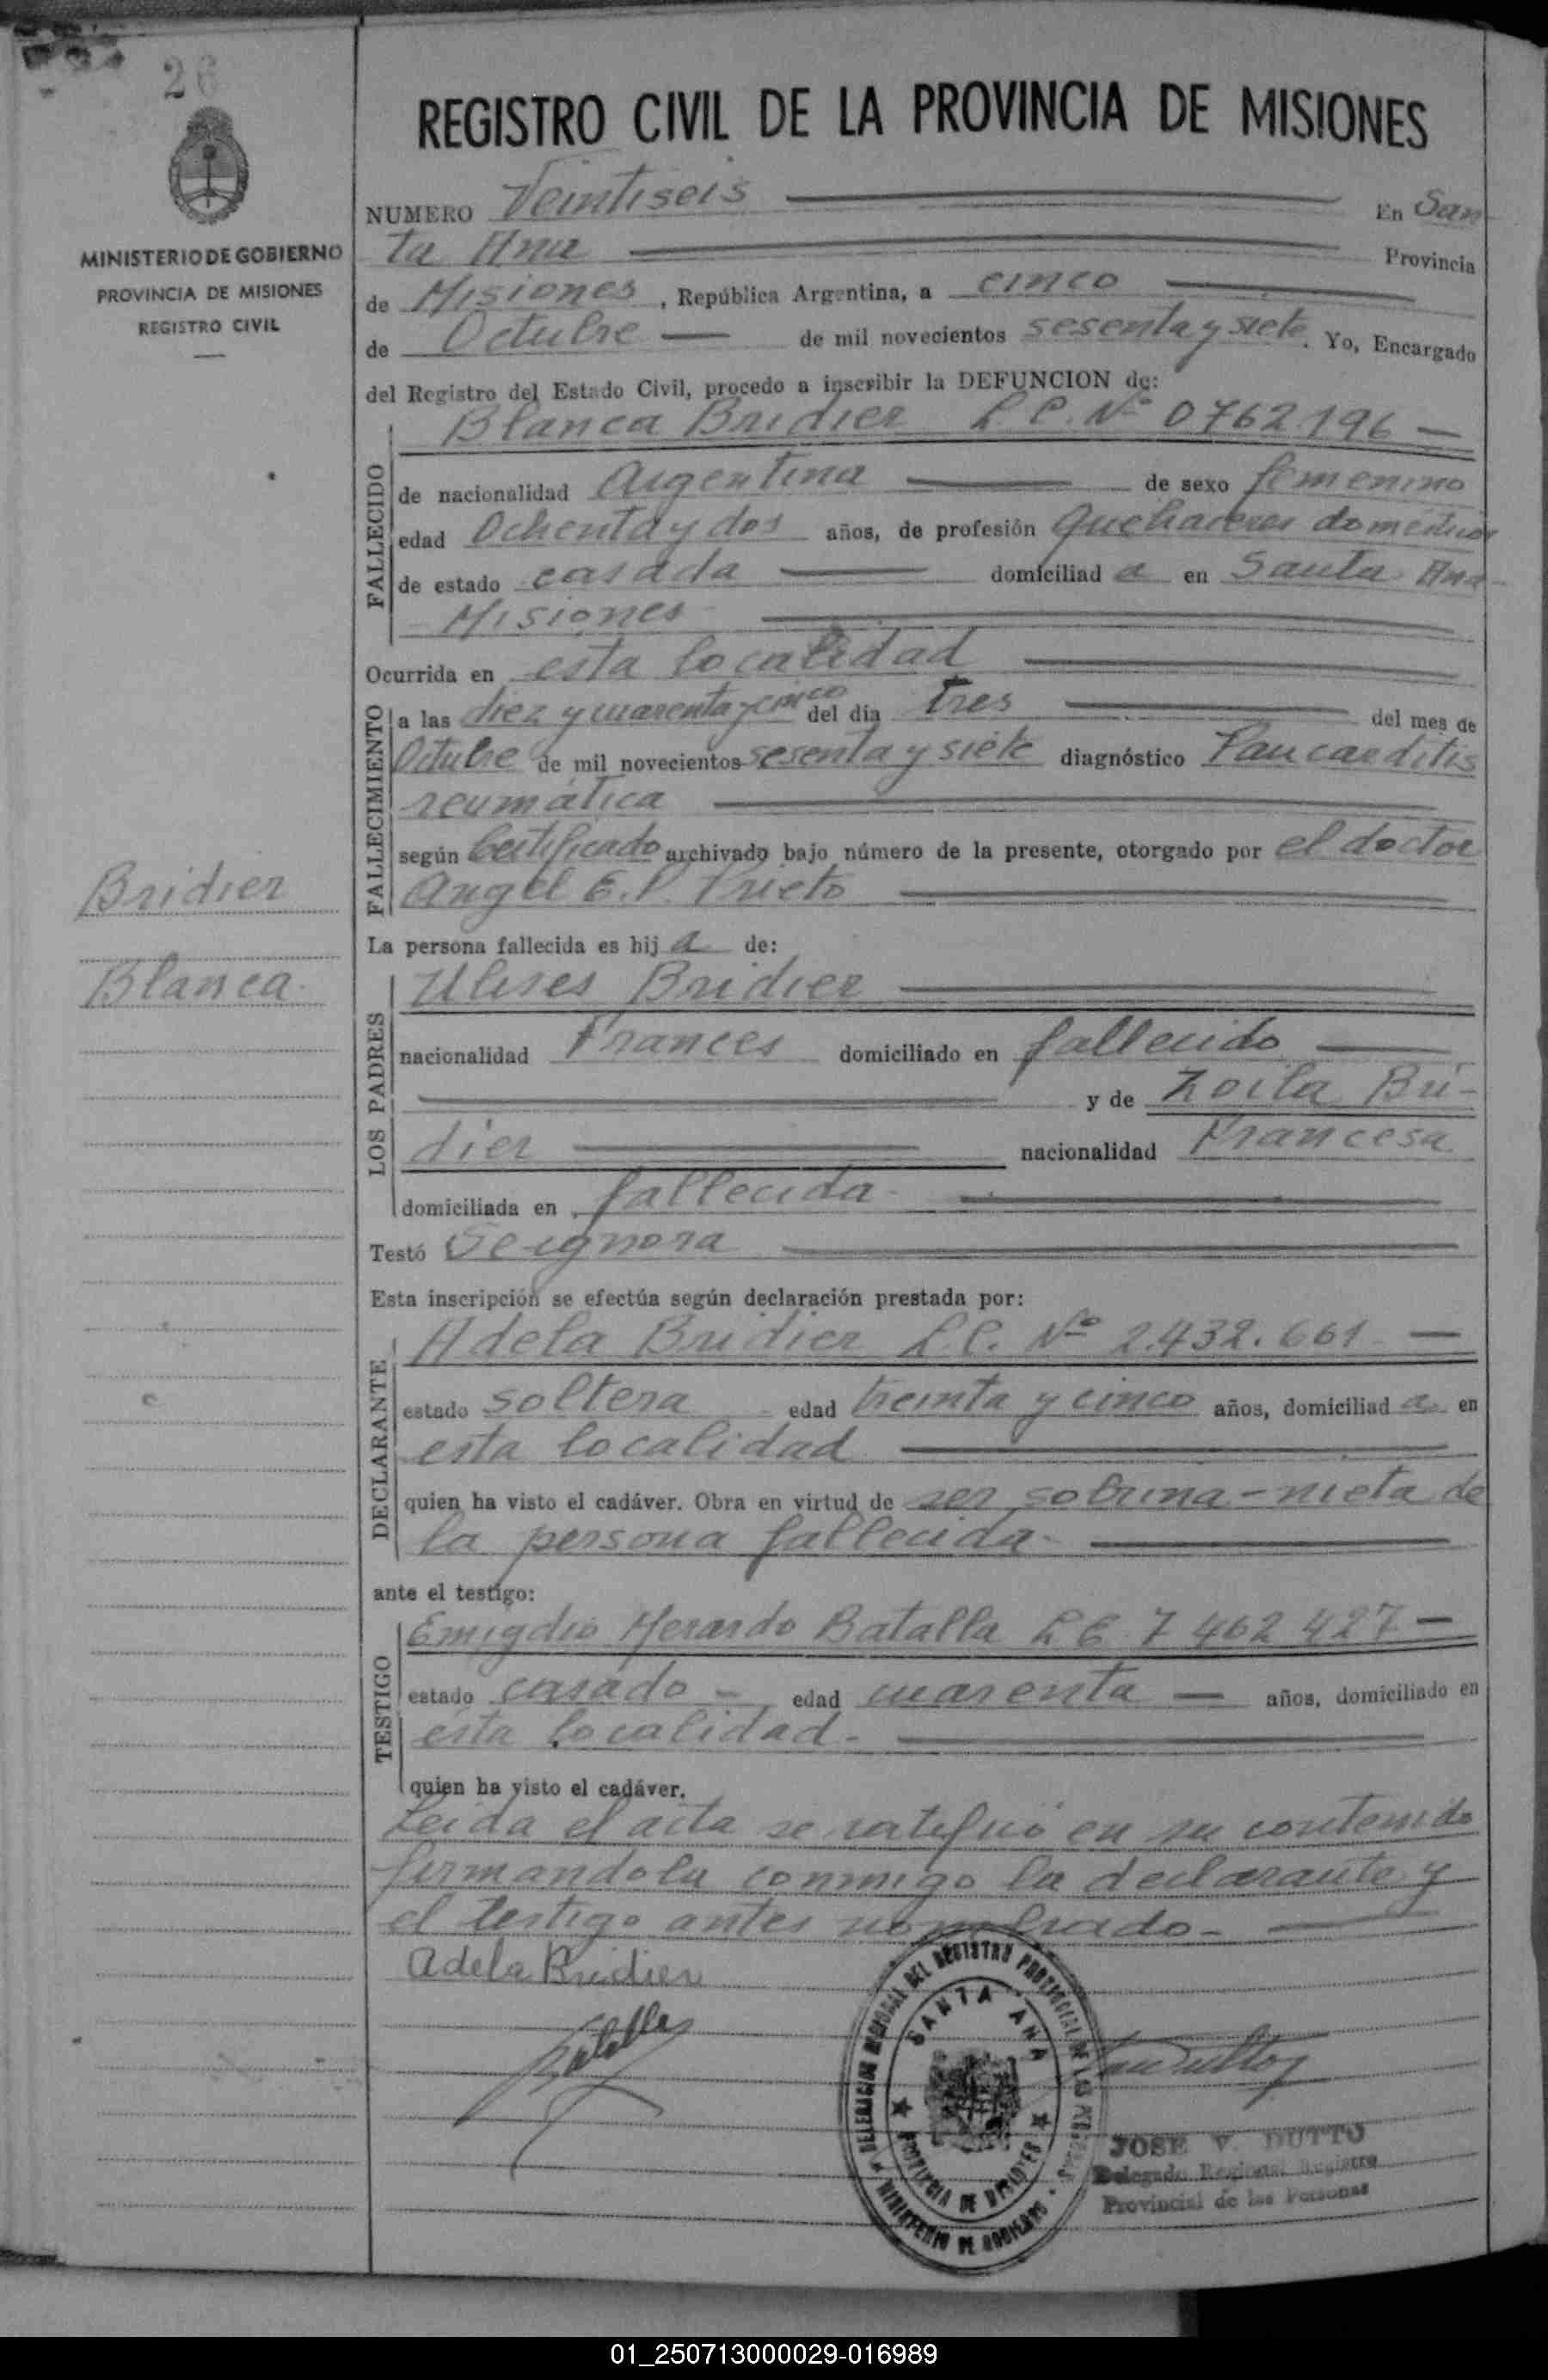 26
MINISTERIO DE GOBIERNO
PROVINCIA DE MISIONES
REGISTRO CIVIL
Bridier
Blanca
REGISTRO CIVIL DE LA PROVINCIA DE MISIONES
NUMERO Veintiseis En San
ta Ana Provincia
de Misiones, República Argentina, a cinco
de Octubre de mil novecientos sesenta y siete. Yo, Encargado
del Registro del Estado Civil, procedo a inscribir la DEFUNCION de:
FALLECIDO
Blanca Bridier L.C. Nº 0762196
de nacionalidad Argentina de sexo femenino
edad Ochenta y dos años, de profesión quehaceres domésticos
de estado casada domiciliad a en Santa Ana
Misiones
Ocurrida en esta localidad
FALLECIMIENTO
a las diez y cuarenta y cinco del día tres del mes de
Octubre de mil novecientos sesenta y siete diagnóstico Pancarditis
reumática
según Certificado archivado bajo número de la presente, otorgado por el doctor
Angel E.P. Prieto
La persona fallecida es hij a de:
LOS PADRES
Ulises Bridier
nacionalidad Frances domiciliado en fallecido
y de Zoila Bri-
dier nacionalidad Francesa
domiciliada en fallecida
Testó Se ignora
Esta inscripción se efectúa según declaración prestada por:
DECLARANTE
Adela Bridier L.C. Nº 2.432.661
estado soltera edad treinta y cinco años, domiciliad a en
esta localidad
quien ha visto el cadáver. Obra en virtud de ser sobrina-nieta de
la persona fallecida
ante el testigo:
TESTIGO
Emigdio Herardo Batalla L E 7 462 427
estado casado edad cuarenta años, domiciliado en
esta localidad.
quien ha visto el cadáver.
Leida el acta se ratificó en su contenido
firmandola conmigo la declarante y
el testigo antes nombrado.
Adela Bridier
Batalla
DELEGACION REGIONAL DEL REGISTRO PROVINCIAL DE LAS PERSONAS
SANTA ANA
PROVINCIA DE MISIONES
MINISTERIO DE GOBIERNO
JOSE V. DUTTO
Delegado Regional Registro
Provincial de las Personas
01_250713000029-016989